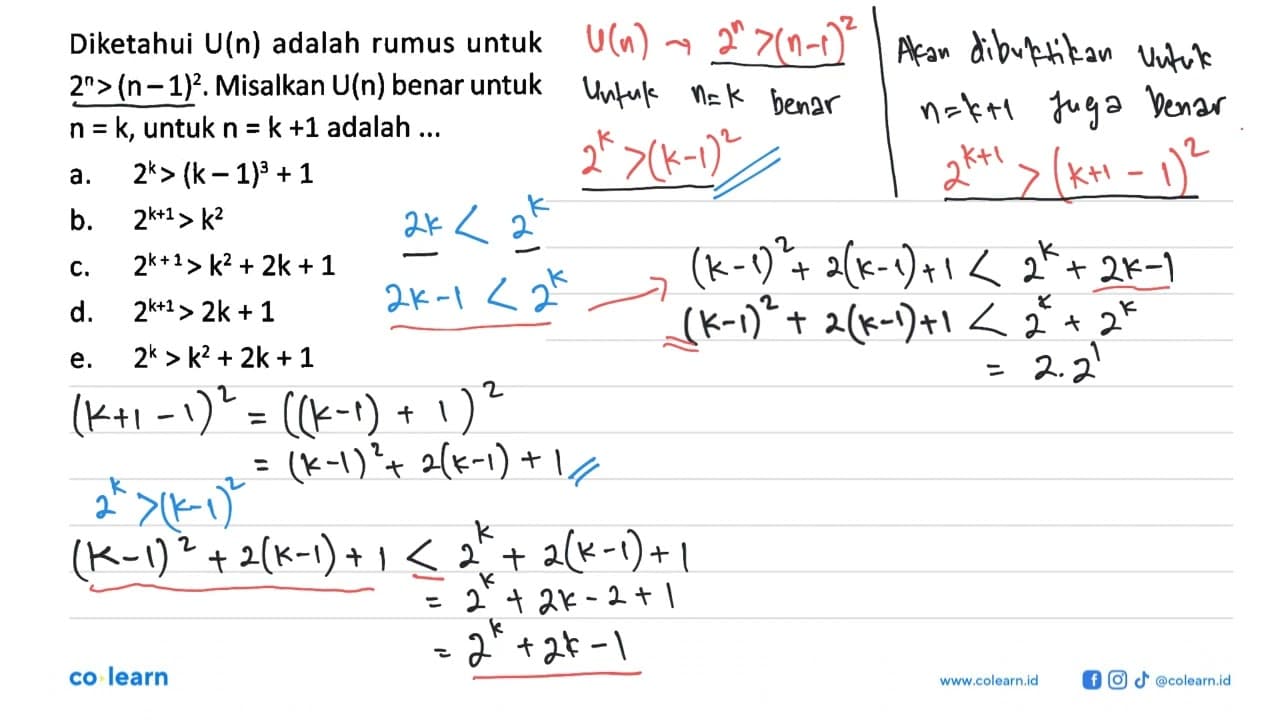 Diketahui U(n) adalah rumus untuk
2ⁿ> (n – 1)². Misalkan U(n) benar untuk
n = k, untuk n = k +1 adalah ...
a. 2ᵏ> (k – 1)³ + 1
b. 2ᵏ⁺¹> k²
c. 2ᵏ⁺¹> k² + 2k + 1
d. 2ᵏ⁺¹> 2k + 1
e. 2ᵏ > k² + 2k + 1
U(n) → 2ⁿ >(n-1)²
Untuk n=k benar
2ᵏ >(k-1)²
Akan dibuktikan Untuk
n=k+1 Juga benar
2ᵏ⁺¹ > (k+1 - 1)²
2k < 2ᵏ
2k-1 < 2ᵏ
(k-1)² + 2(k-1) +1 < 2ᵏ + 2k-1
(k-1)² + 2(k-1)+1 < 2ᵏ + 2ᵏ
= 2.2¹
(k+1 - 1)² = ((k-1) + 1)²
= (k-1)² + 2(k-1) + 1
2ᵏ >(k-1)²
(k-1)² + 2(k-1) + 1 < 2ᵏ + 2(k-1)+1
= 2ᵏ + 2k - 2 + 1
= 2ᵏ + 2k - 1
co learn
www.colearn.id
@colearn.id